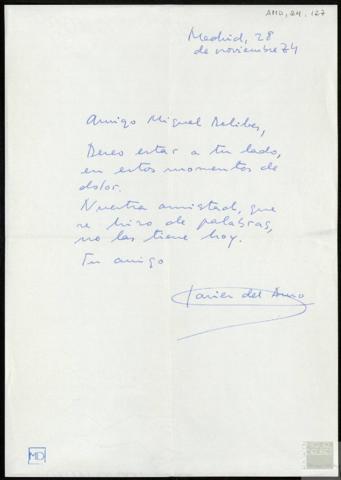 AMD, 24, 127
Madrid, 28
de noviembre 74
Amigo Miguel Delibes,
Deseo estar a tu lado,
en estos momentos de
dolor.
Nuestra amistad, que
se hizo de palabras,
no las tiene hoy.
Tu amigo
Javier del Amo
MD